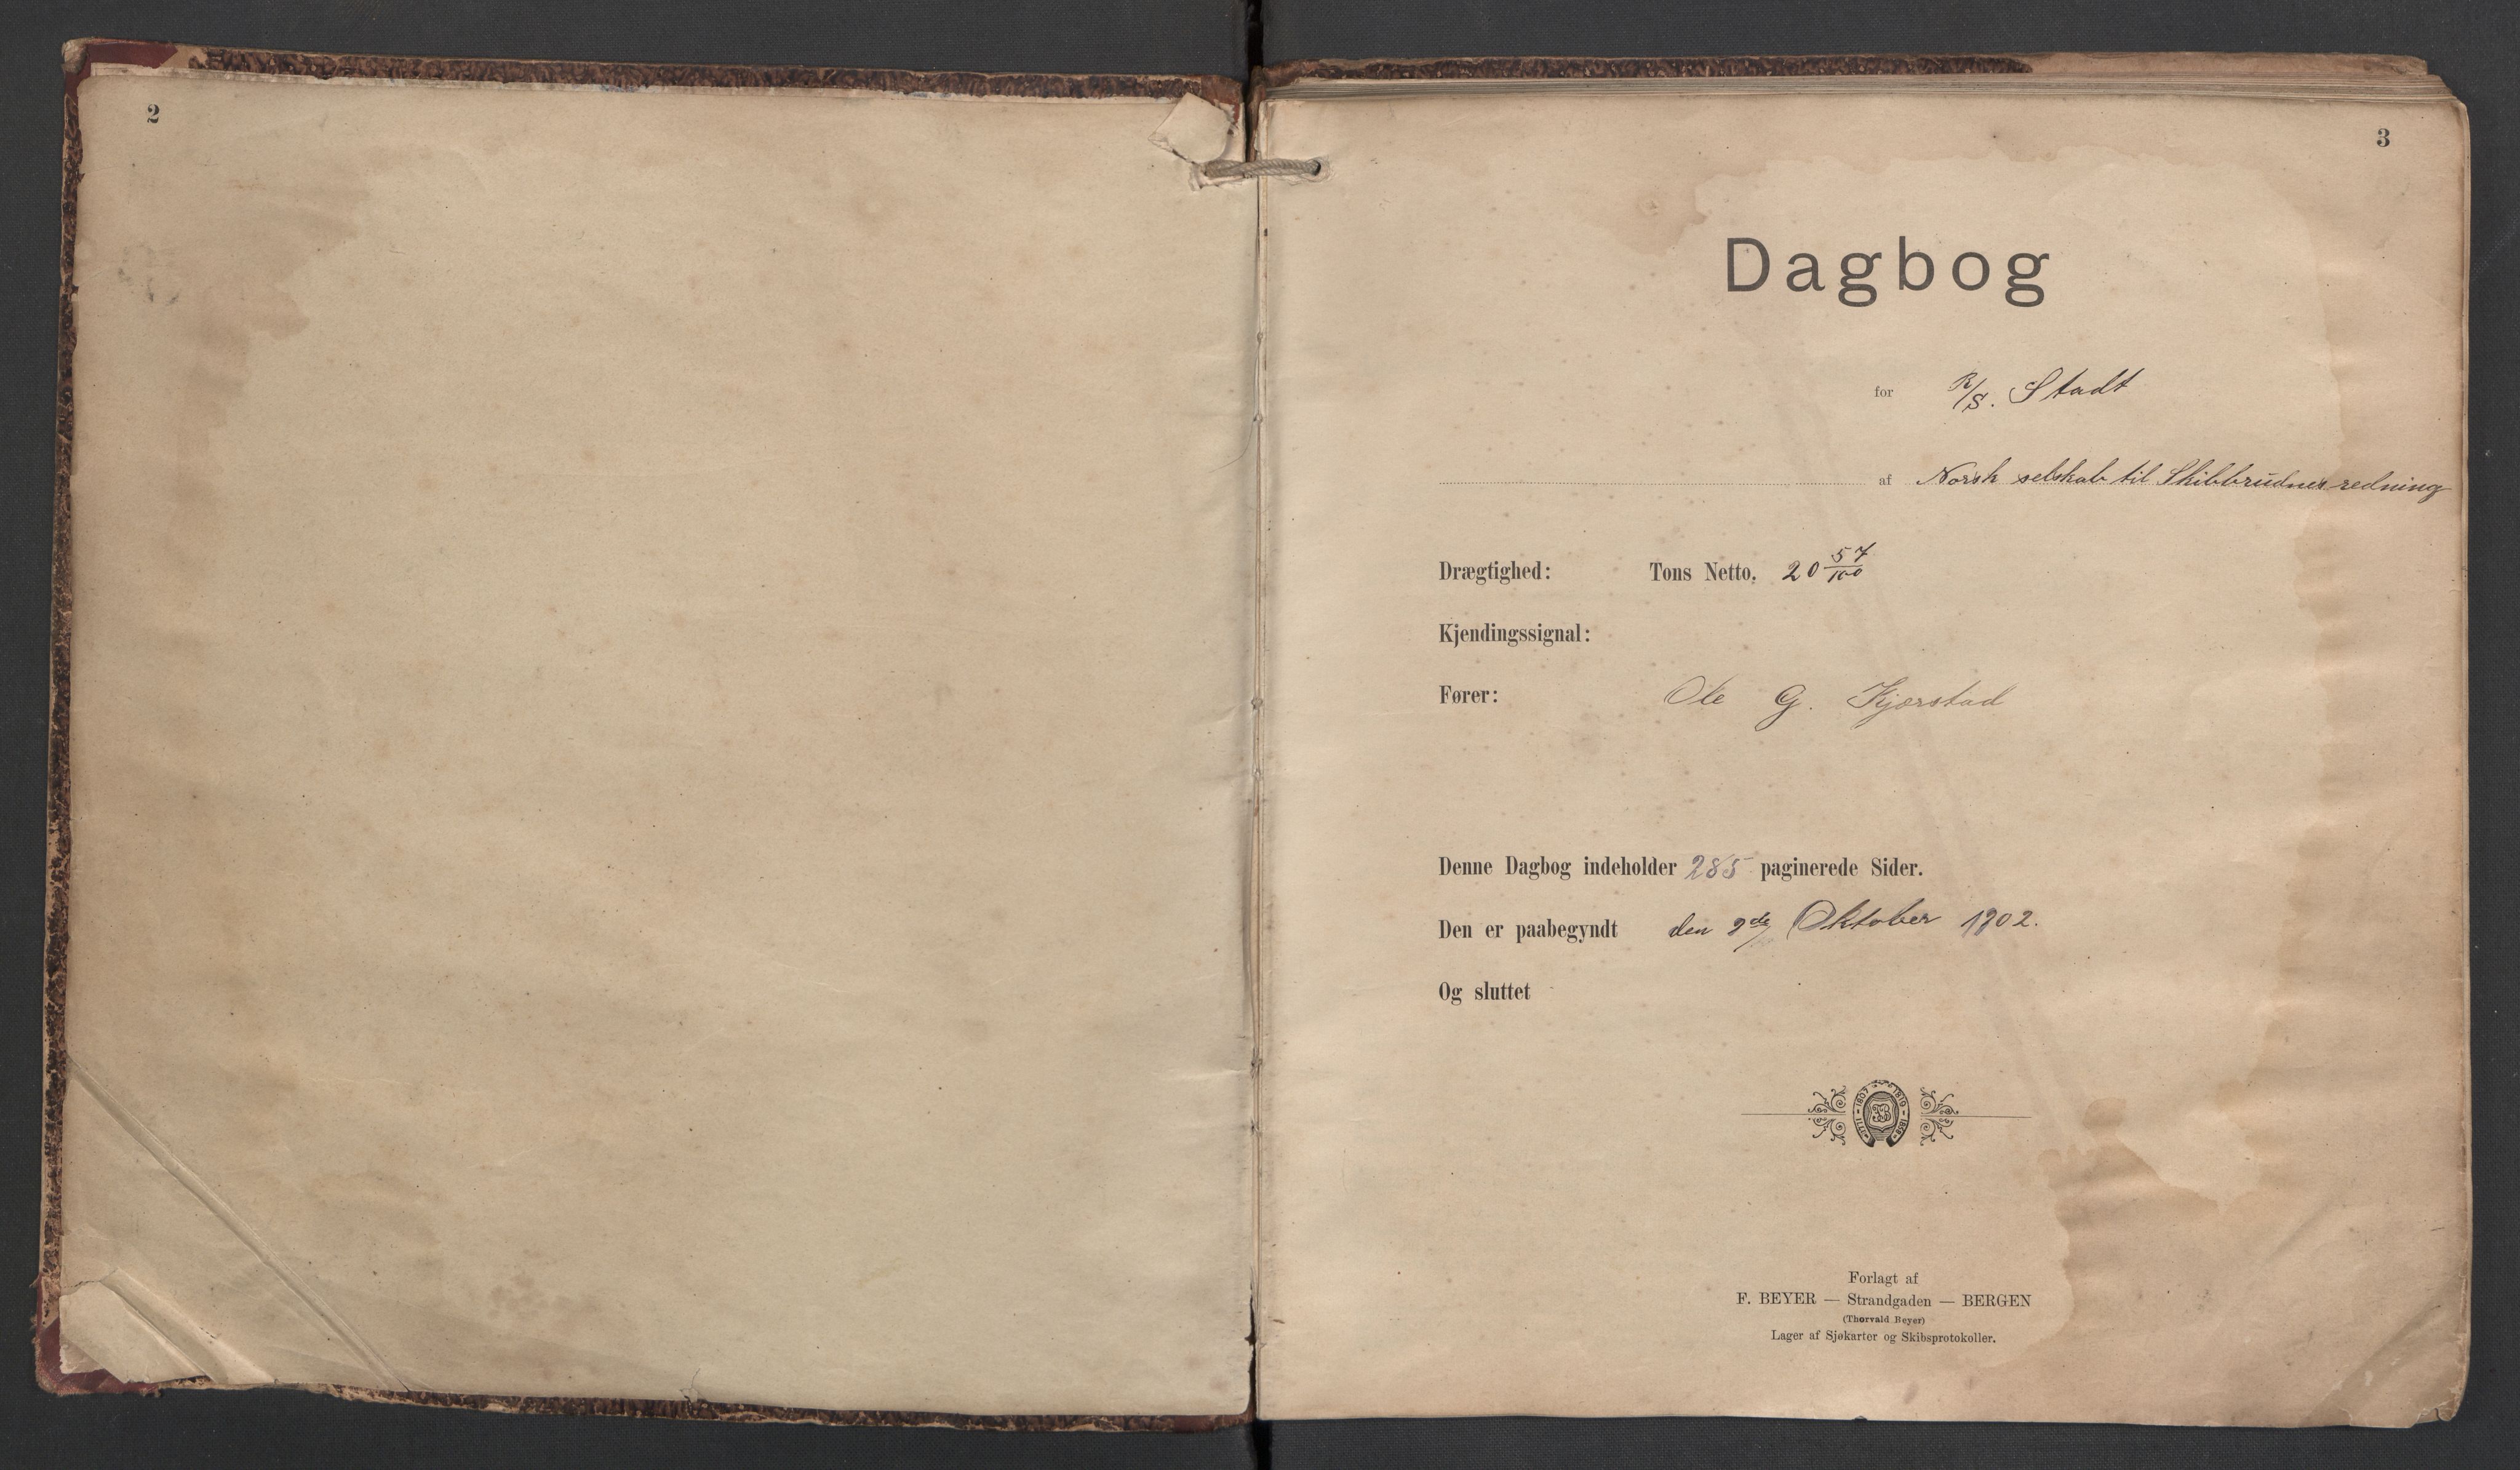 2
3
Dagbog
for R/S. Stadt
af Norsk selskab til Skibbrudnes redning
Drægtighed: Tons Netto. 20 57/100
Kjendingssignal:
Fører: Ole G. Kjørstad
Denne Dagbog indeholder 285 paginerede Sider.
Den er paabegyndt den 2de Oktober 1902.
Og sluttet
1771 - 1807 - 1819 - 1868
Forlagt af
F. BEYER — Strandgaden — BERGEN
(Thorvald Beyer)
Lager af Sjøkarter og Skibsprotokoller.